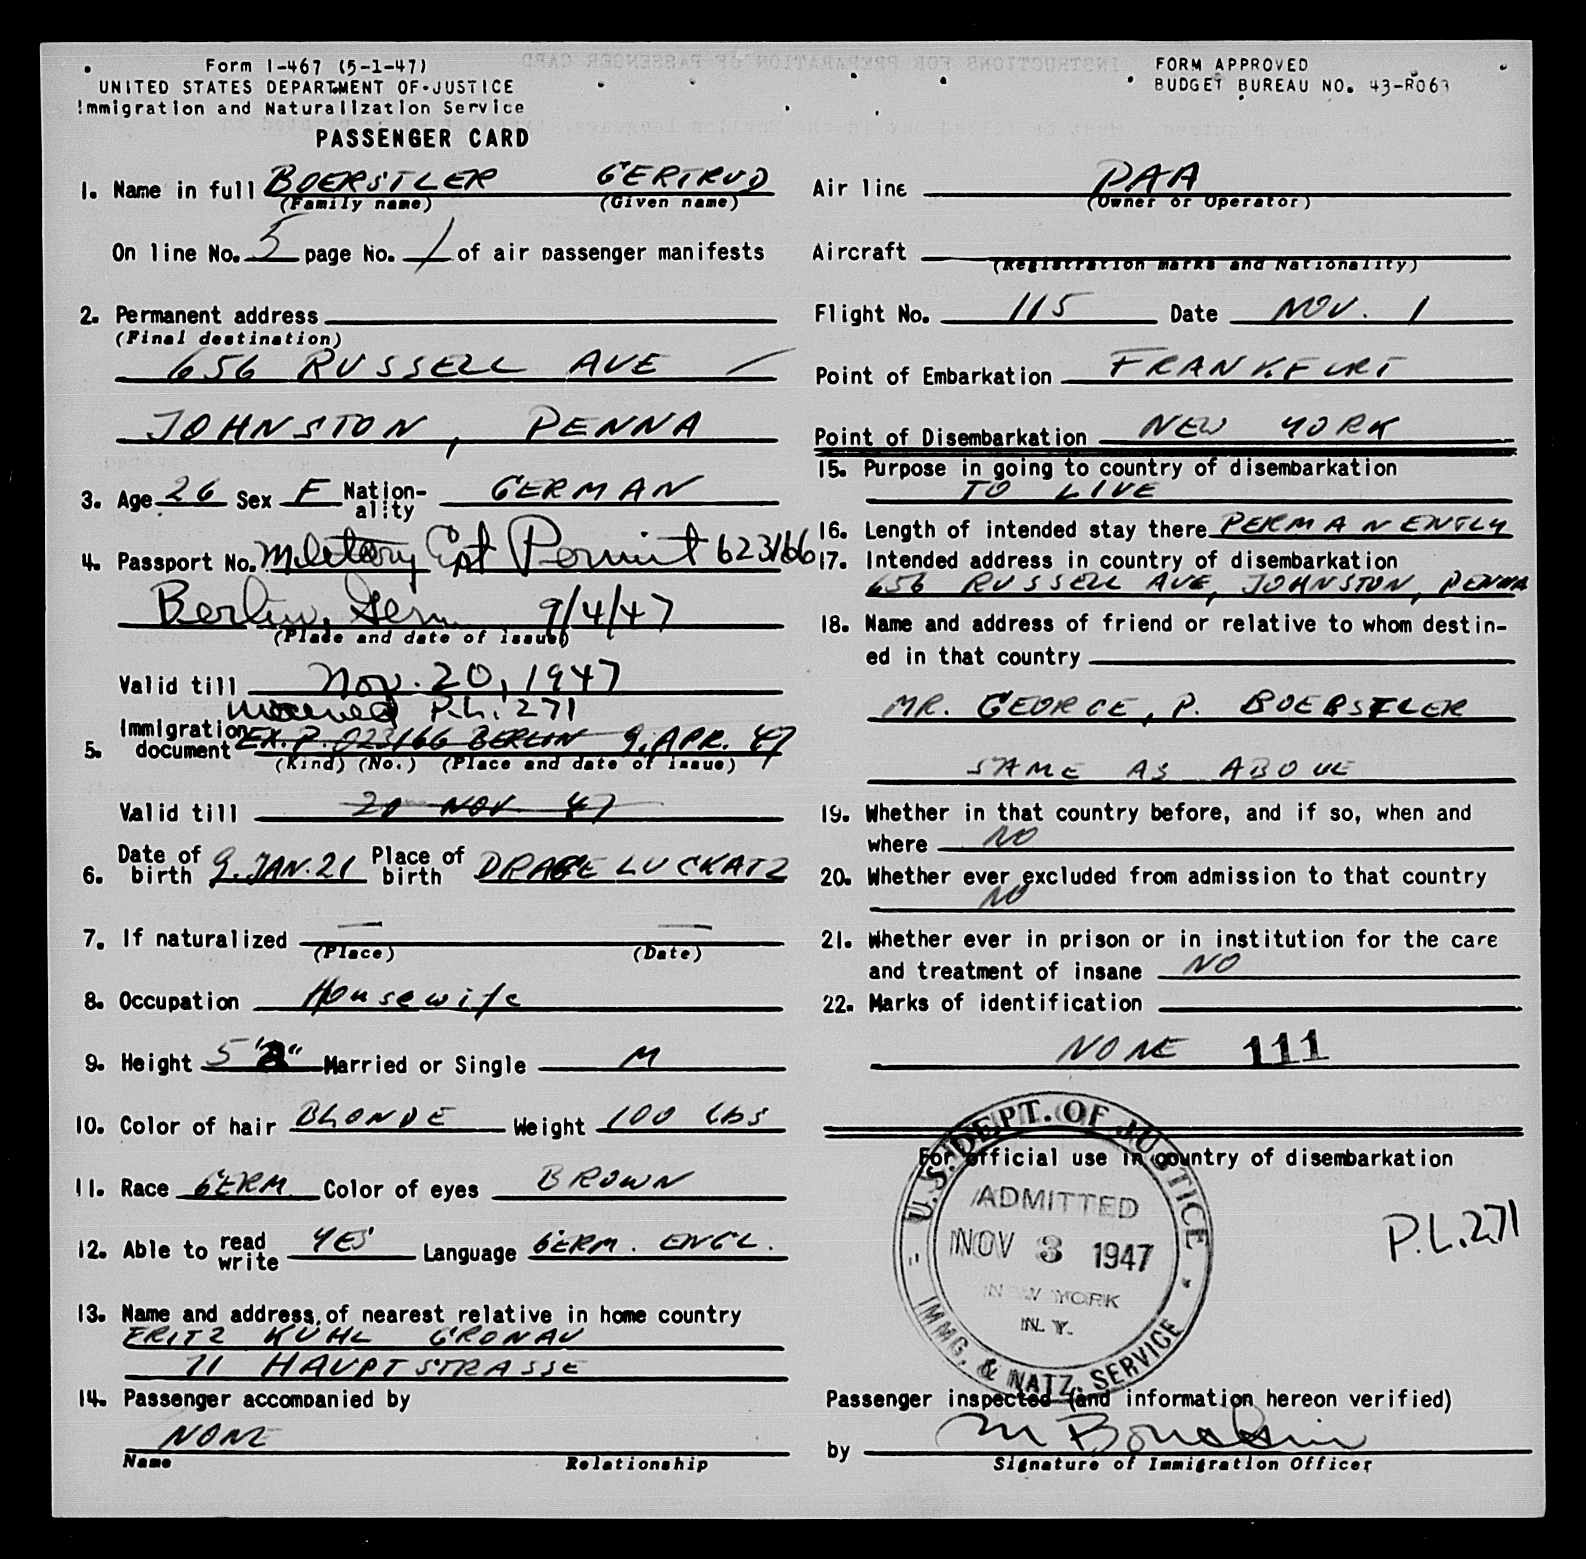 Form I-467 (5-1-47)
UNITED STATES DEPARTMENT OF JUSTICE
Immigration and Naturalization Service
PASSENGER CARD
FORM APPROVED
BUDGET BUREAU NO. 43-R063
1. Name in full BOERSTLER GERTRUD
(Family name) (Given name)
On line No. 5 page No. 1 of air passenger manifests
2. Permanent address
(Final destination)
656 RUSSELL AVE
JOHNSTON, PENNA
3. Age 26 Sex F Nation-
ality GERMAN
4. Passport No. Military Exit Permit 623166
Berlin, Germ 9/4/47
(Place and date of issue)
Valid till Nov. 20, 1947
P.L. 271
5. Immigration
document EX. P. 023166 BERLIN 9. APR. 47
(Kind) (No.) (Place and date of issue)
Valid till 20 NOV. 47
6. Date of
birth 9. JAN. 21 Place of
birth DRAGE LUCKATZ
7. If naturalized — —
(Place) (Date)
8. Occupation Housewife
9. Height 5' 2" Married or Single M
10. Color of hair BLONDE Weight 100 lbs
11. Race GERM. Color of eyes BROWN
12. Able to read
write YES Language GERM. ENGL.
13. Name and address of nearest relative in home country
FRITZ KUHL GRONAU
11 HAUPTSTRASSE
14. Passenger accompanied by
NONE
Name Relationship
Air line PAA
(Owner or Operator)
Aircraft
(Registration marks and Nationality)
Flight No. 115 Date NOV. 1
Point of Embarkation FRANKFURT
Point of Disembarkation NEW YORK
15. Purpose in going to country of disembarkation
TO LIVE
16. Length of intended stay there PERMANENTLY
17. Intended address in country of disembarkation
656 RUSSELL AVE, JOHNSTON, PENNA
18. Name and address of friend or relative to whom destin-
ed in that country
MR. GEORGE, P. BOERSTLER
SAME AS ABOVE
19. Whether in that country before, and if so, when and
where NO
20. Whether ever excluded from admission to that country
NO
21. Whether ever in prison or in institution for the care
and treatment of insane NO
22. Marks of identification
NONE 111
For official use in country of disembarkation
U.S. DEPT. OF JUSTICE
ADMITTED
NOV 3 1947
NEW YORK
N. Y.
IMMG. & NATZ. SERVICE
P.L. 271
Passenger inspected (and information hereon verified)
by
Signature of Immigration Officer